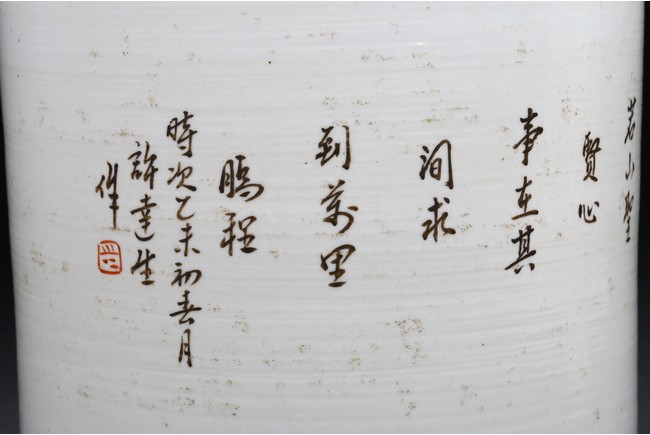 若山聖
賢心
事在其
間求
到萬里
鵬程
時次乙未初春月
許達生
作